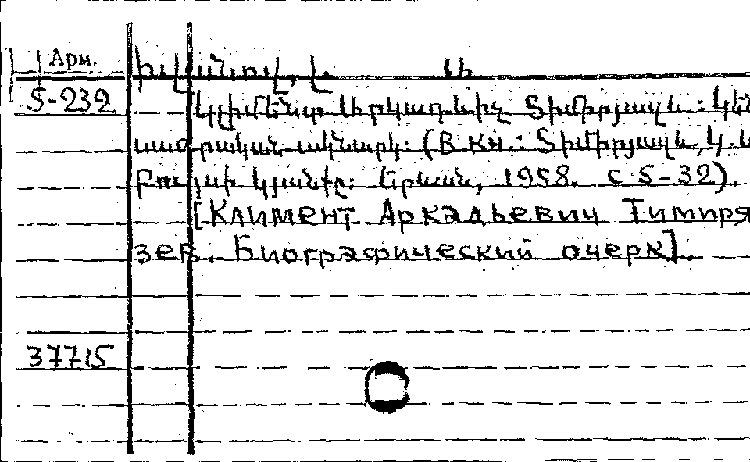 Арм.
Իվանով, Լ.
Տ-232
Կլիմենտ Արկադևիչ Տիմիրյազև: Կեն
սագրական ակնարկ: (В кн.: Տիմիրյազև, Կ. Ա
Բույսի կյանքը: Երևան, 1958. с 5-32).
[Климент Аркадьевич Тимиря
зев. Биографический очерк].
37715